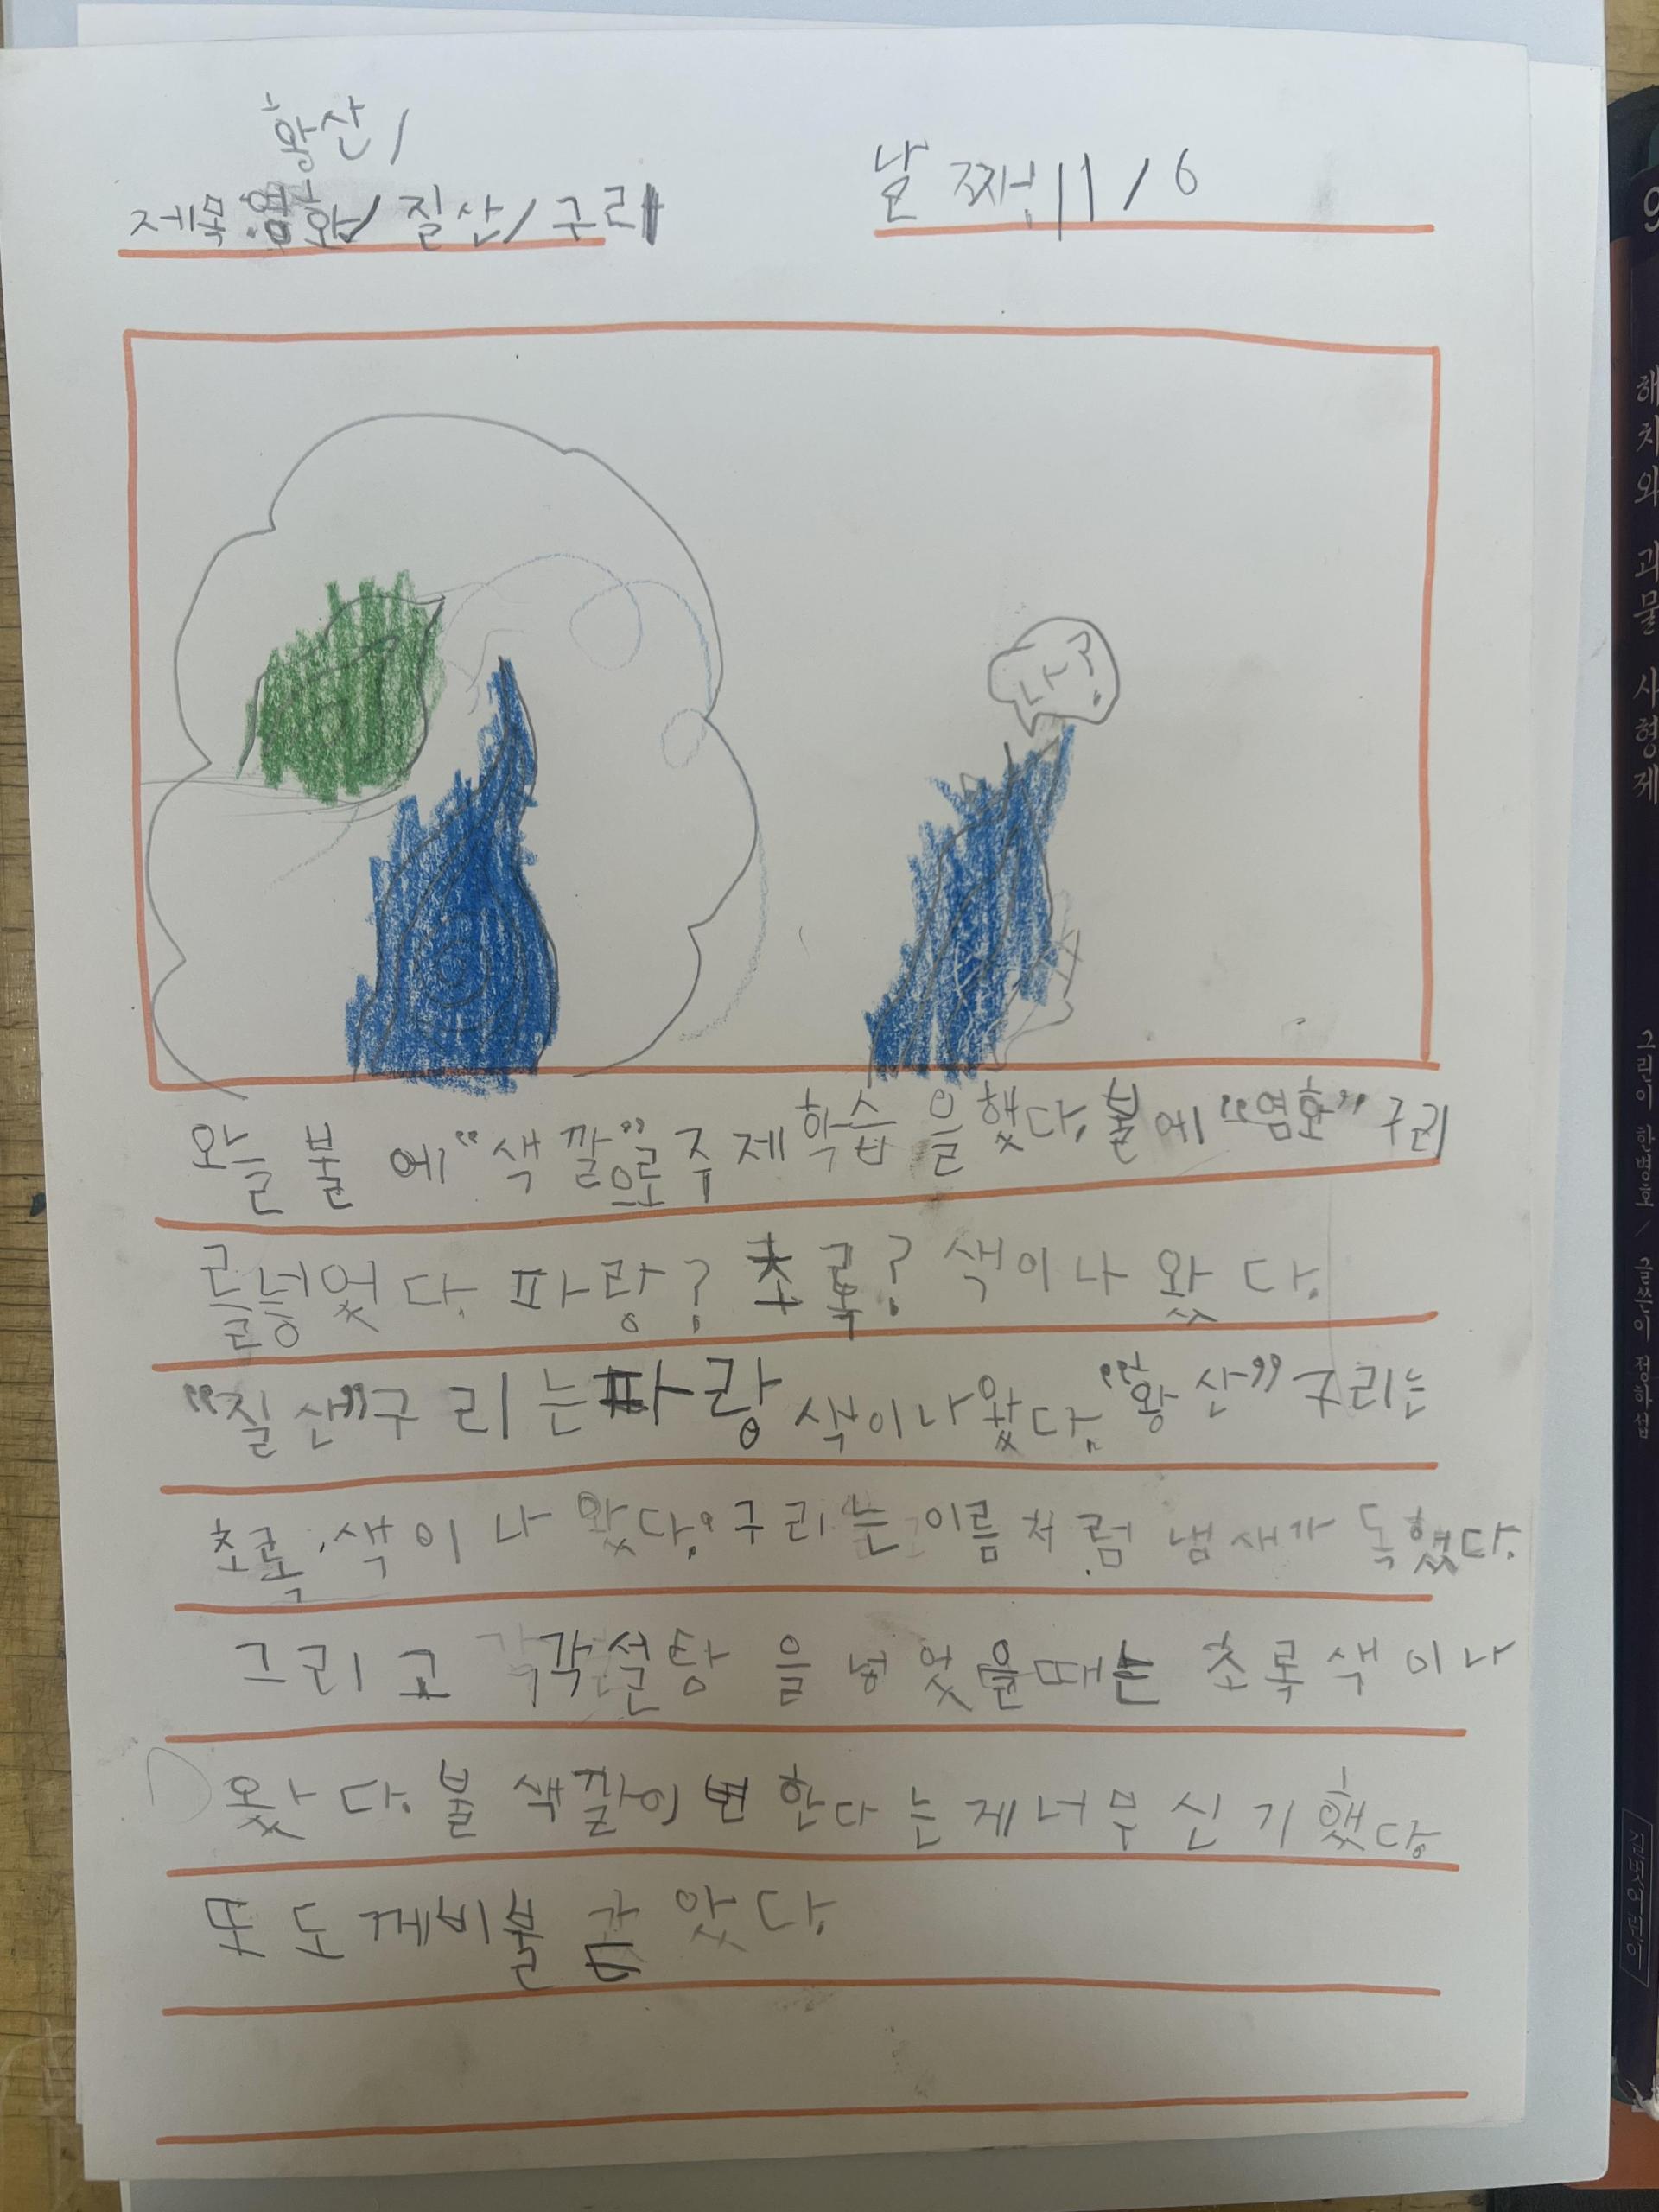 황산/
제목:염화/질산/구리
날짜:11/6
나?
와늘 불에 "색깔"으로 주제 학습을 했다. 불에 "염화" 구리
를넣었다. 파랑? 초록? 색이나왔다.
"질산"구리는파랑색이나왔다. "황산"구리는
초록색이나왔다. 구리는 이름처럼 냄새가 독했다.
그리고 각각설탕을 넣었을때는 초록색이나
왔다. 불 색깔이변한다는제너무신기했다.
또도께비불 같았다.
9
해치와 괴물 사형제
그린이 한병호 / 글쓴이 정하섭